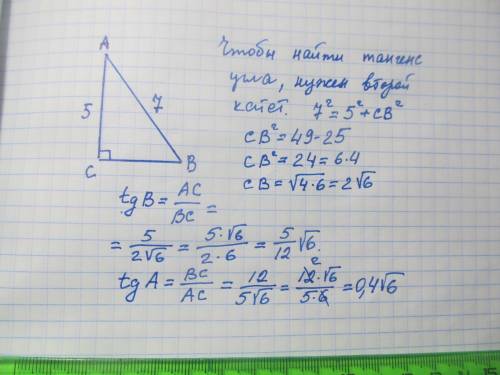 A
5
7
C
B
Чтобы найти тангенс
угла, нужен второй
катет. 7² = 5² + CB²
CB² = 49 - 25
CB² = 24 = 6·4
CB = √4·6 = 2√6
tg B = AC/BC =
= 5/2√6 = 5·√6/2·6 = 5/12 √6.
tg A = BC/AC = 12/5√6 = 12·√6/5·6 = 0,4√6